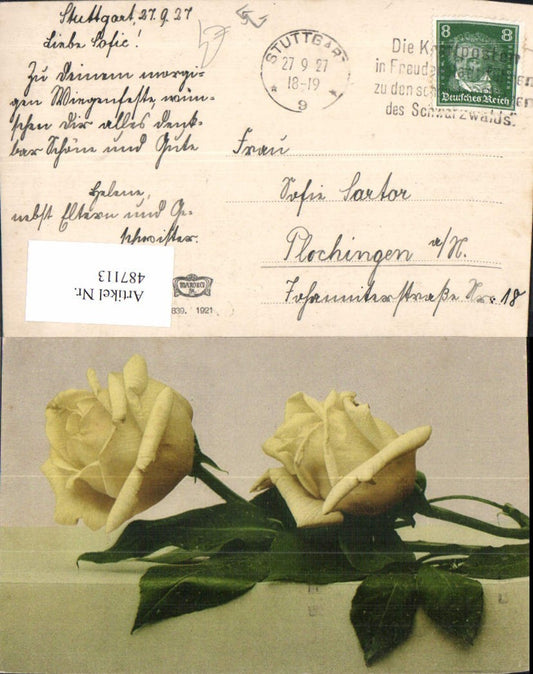 Stuttgart, 27.9.27
Liebe Sofie!
Zu Deinem morgi-
gen Wiegenfeste wün-
schen Dir alles denk-
bar Schöne und Gute
Helene,
nebst Eltern und Ge-
schwister.
STUTTGART
27 9 27
18-19
* 9 *
Die Kraftposten
in Freude
zu den
des Schwarzwalds
8 8
Deutsches Reich
Frau
Sofie Sartor
Plochingen a/N.
Johanniterstraße Nr. 18
Artikel Nr.
487113
839. 1921